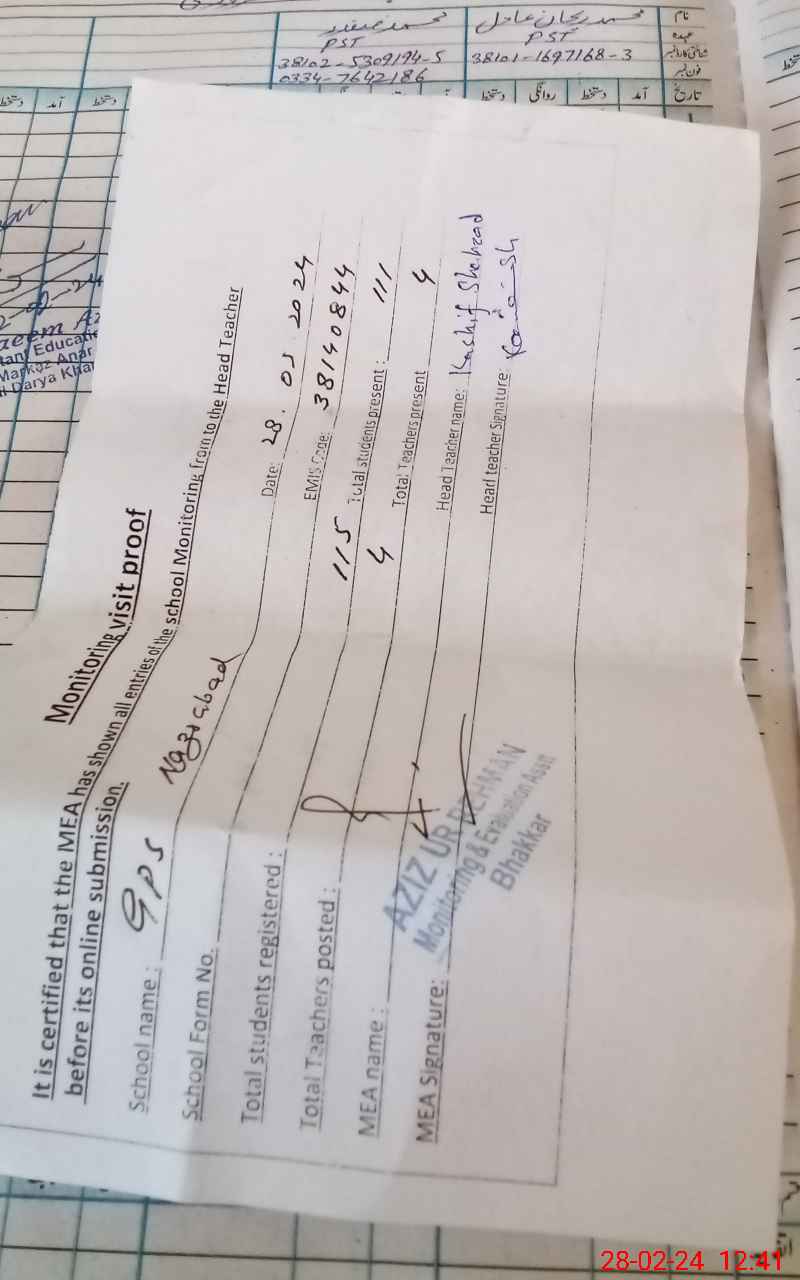 محمد ریحان عادل
محمد صفدر
نام
PST
PST
عہدہ
38101-1697168-3
38102-5309194-5
شناختی کارڈ نمبر
0334-7642186
فون نمبر
تاریخ آمد دستخط روانگی دستخط
دستخط آمد دستخط
Monitoring visit proof
It is certified that the MEA has shown all entries of the school Monitoring from to the Head Teacher
before its online submission.
School name : GPS Nazirabad Date: 28.02.2024
School Form No. EMIS Code: 38140844
Total students registered : 115 Total students present : 111
Total Teachers posted : 4 Total Teachers present 4
MEA name : Head Teacher name: Kashif Shehzad
MEA Signature: Head teacher Signature:
AZIZ UR REHMAN
Monitoring & Evaluation Asstt
Bhakkar
Markaz Anar
Darya Khan
28-02-24 12:41